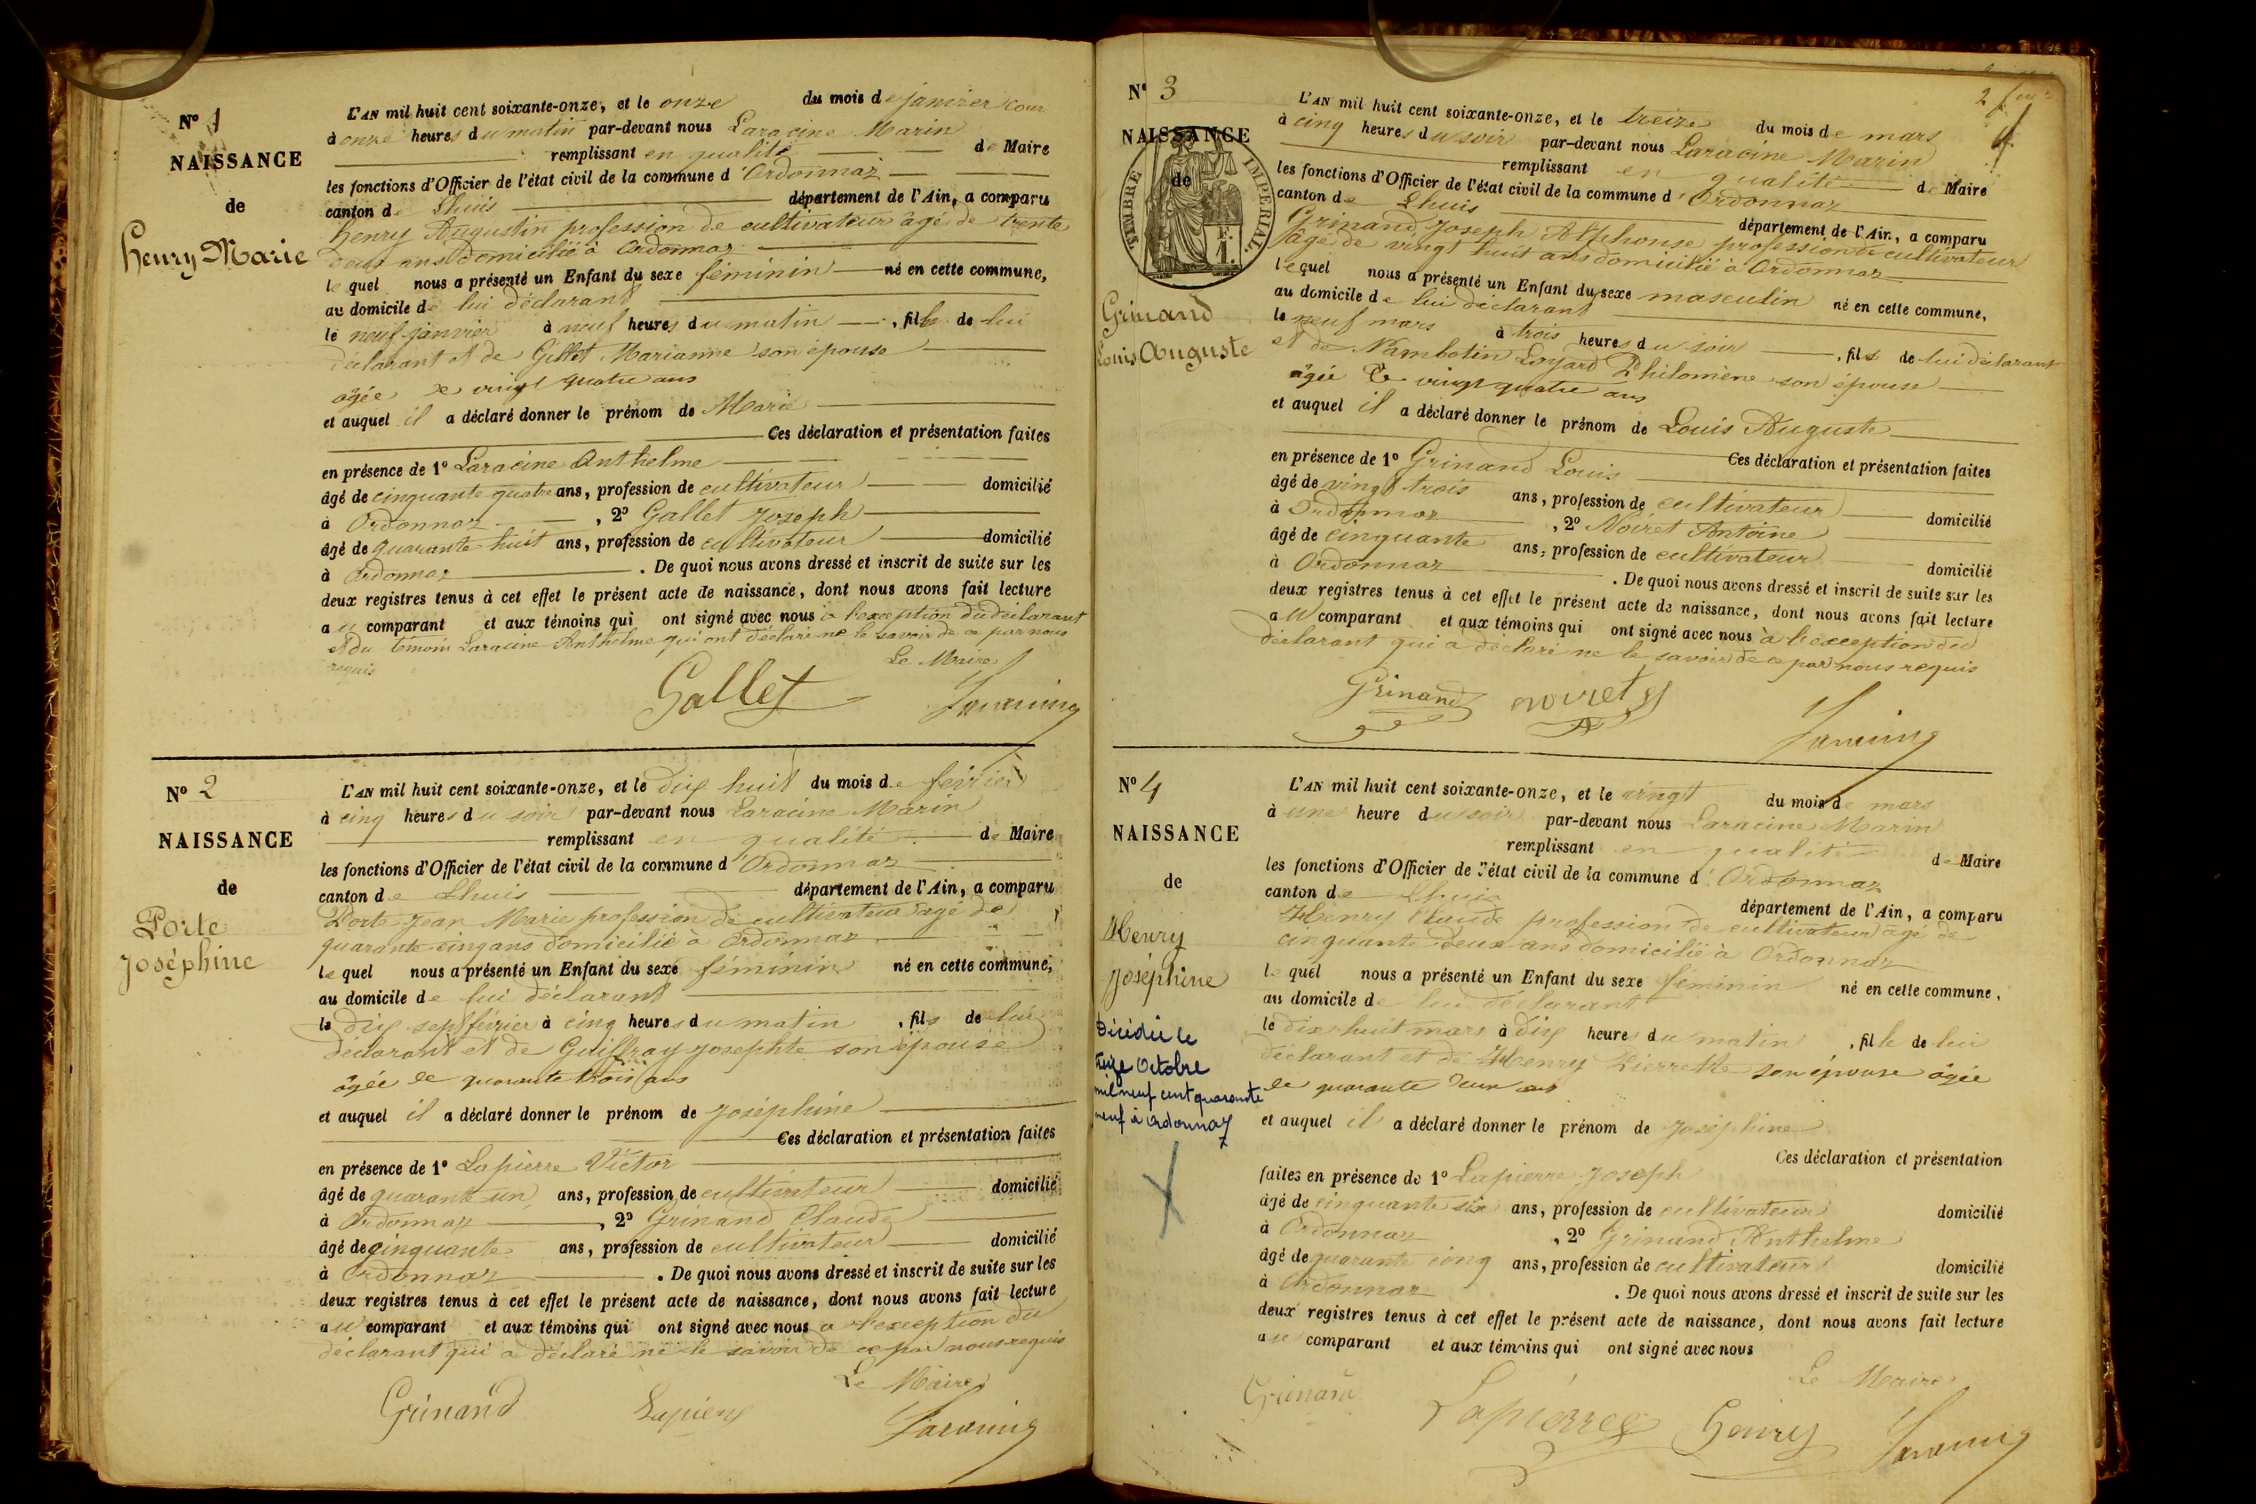 N° 1
NAISSANCE
de
Henry Marie
L'AN mil huit cent soixante-onze, et le onze du mois de janvier cour
à onze heures du matin par-devant nous Laracine Marin
remplissant en qualité de Maire
les fonctions d'Officier de l'état civil de la commune d'Ordonnaz
canton de Lhuis département de l'Ain, a comparu
henry Augustin profession de cultivateur âgé de trente
deux ans domicilié à Ordonnaz
le quel nous a présenté un Enfant du sexe féminin né en cette commune,
au domicile de lui déclarant
le neuf janvier à neuf heures du matin , fille de lui
déclarant et de Gillet Marianne son épouse
âgée de vingt quatre ans
et auquel il a déclaré donner le prénom de Marie
Ces déclaration et présentation faites
en présence de 1° Laracine Anthelme
âgé de cinquante quatre ans, profession de cultivateur domicilié
à Ordonnaz , 2° Gallet Joseph
âgé de quarante huit ans, profession de cultivateur domicilié
à Ordonnaz . De quoi nous avons dressé et inscrit de suite sur les
deux registres tenus à cet effet le présent acte de naissance, dont nous avons fait lecture
au comparant et aux témoins qui ont signé avec nous à l'exception du déclarant
et du témoin Laracine Anthelme qui ont déclaré ne le savoir de ce par nous
requis
Le Maire
Gallet
N° 2
NAISSANCE
de
Porte
Joséphine
L'AN mil huit cent soixante-onze, et le dix huit du mois de février
à cinq heures du soir par-devant nous Laracine Marin
remplissant en qualité de Maire
les fonctions d'Officier de l'état civil de la commune d'Ordonnaz
canton de Lhuis département de l'Ain, a comparu
Porte Jean Marie profession de cultivateur âgé de
quarante cinq ans domicilié à Ordonnaz
le quel nous a présenté un Enfant du sexe féminin né en cette commune,
au domicile de lui déclarant
le dix sept février à cinq heures du matin , fils de lui
déclarant et de Guiffray Josephte son épouse
âgée de quarante trois ans
et auquel il a déclaré donner le prénom de Joséphine
Ces déclaration et présentation faites
en présence de 1° Lapierre Victor
âgé de quarante un ans, profession de cultivateur domicilié
à Ordonnaz , 2° Grinand Claude
âgé de cinquante ans, profession de cultivateur domicilié
à Ordonnaz . De quoi nous avons dressé et inscrit de suite sur les
deux registres tenus à cet effet le présent acte de naissance, dont nous avons fait lecture
au comparant et aux témoins qui ont signé avec nous à l'exception du
déclarant qui a déclaré ne le savoir de ce par nous requis
Le Maire
Grinand Lapierre
N° 3
NAISSANCE
de
TIMBRE IMPÉRIAL
Grinand
Louis Auguste
L'AN mil huit cent soixante-onze, et le treize du mois de mars
à cinq heures du soir par-devant nous Laracine Marin
remplissant en qualité de Maire
les fonctions d'Officier de l'état civil de la commune d'Ordonnaz
canton de Lhuis département de l'Ain, a comparu
Grinand Joseph Alphonse profession de cultivateur
âgé de vingt huit ans domicilié à Ordonnaz
lequel nous a présenté un Enfant du sexe masculin né en cette commune,
au domicile de lui déclarant
le neuf mars à trois heures du soir , fils de lui déclarant
et de Nambotin Loyard Philomène son épouse
âgée de vingt quatre ans
et auquel il a déclaré donner le prénom de Louis Auguste
Ces déclaration et présentation faites
en présence de 1° Grinand Louis
âgé de vingt trois ans, profession de cultivateur domicilié
à Ordonnaz , 2° Noiret Antoine
âgé de cinquante ans, profession de cultivateur domicilié
à Ordonnaz . De quoi nous avons dressé et inscrit de suite sur les
deux registres tenus à cet effet le présent acte de naissance, dont nous avons fait lecture
au comparant et aux témoins qui ont signé avec nous à l'exception du
déclarant qui a déclaré ne le savoir de ce par nous requis
Grinand noiret
N° 4
NAISSANCE
de
Henry
Joséphine
Décédée le
treize Octobre
mil neuf cent quarante
neuf à Ordonnaz
L'AN mil huit cent soixante-onze, et le vingt du mois de mars
à une heure du soir par-devant nous Laracine Marin
remplissant en qualité de Maire
les fonctions d'Officier de l'état civil de la commune d'Ordonnaz
canton de Lhuis département de l'Ain, a comparu
Henry Claude profession de cultivateur âgé de
cinquante deux ans domicilié à Ordonnaz
le quel nous a présenté un Enfant du sexe féminin né en cette commune,
au domicile de lui déclarant
le dix huit mars à dix heures du matin , fille de lui
déclarant et de Henry Pierrette son épouse âgée
de quarante deux ans
et auquel il a déclaré donner le prénom de Joséphine
Ces déclaration et présentation
faites en présence de 1° Lapierre Joseph
âgé de cinquante six ans, profession de cultivateur domicilié
à Ordonnaz , 2° Grinand Anthelme
âgé de quarante cinq ans, profession de cultivateur domicilié
à Ordonnaz . De quoi nous avons dressé et inscrit de suite sur les
deux registres tenus à cet effet le présent acte de naissance, dont nous avons fait lecture
au comparant et aux témoins qui ont signé avec nous
Le Maire
Grinand Lapierre henry